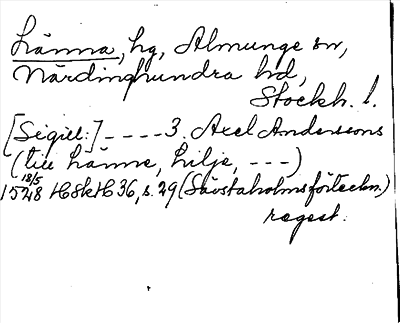 Länna, hg, Almunge sn,
Närdinghundra hd,
Stockh. l.
[Sigill:] ---- 3. Axel Anderssons
(till Länne, hilje, ---)
18/5
1528 HSkH 36, s. 29 (Sävstaholmsförteckn.)
regest.